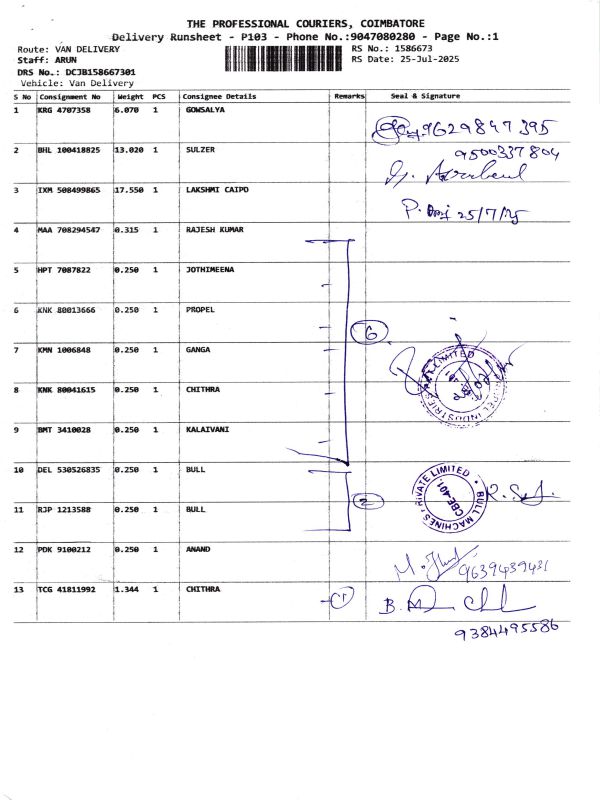 THE PROFESSIONAL COURIERS, COIMBATORE
Delivery Runsheet - P103 - Phone No.:9047080280 - Page No.:1
Route: VAN DELIVERY RS No.: 1586673
Staff: ARUN RS Date: 25-Jul-2025
DRS No.: DCJB158667301
Vehicle: Van Delivery
S No Consignment No Weight PCS Consignee Details Remarks Seal & Signature
1 KRG 4707358 6.070 1 GOWSALYA
9629847395
2 BHL 100418825 13.020 1 SULZER 9500337804
3 IXM 508499865 17.550 1 LAKSHMI CAIPO
P. 25/7/25
4 MAA 708294547 0.315 1 RAJESH KUMAR
5 HPT 7087822 0.250 1 JOTHIMEENA
6 KNK 80013666 0.250 1 PROPEL
6
7 KMN 1006848 0.250 1 GANGA
8 KNK 80041615 0.250 1 CHITHRA
9 BMT 3410028 0.250 1 KALAIVANI
10 DEL 530526835 0.250 1 BULL
BULL MACHINES PRIVATE LIMITED
CBE-401.
2
11 RJP 1213588 0.250 1 BULL
12 PDK 9100212 0.250 1 ANAND
9639439431
13 TCG 41811992 1.344 1 CHITHRA
1
B.
9384495586